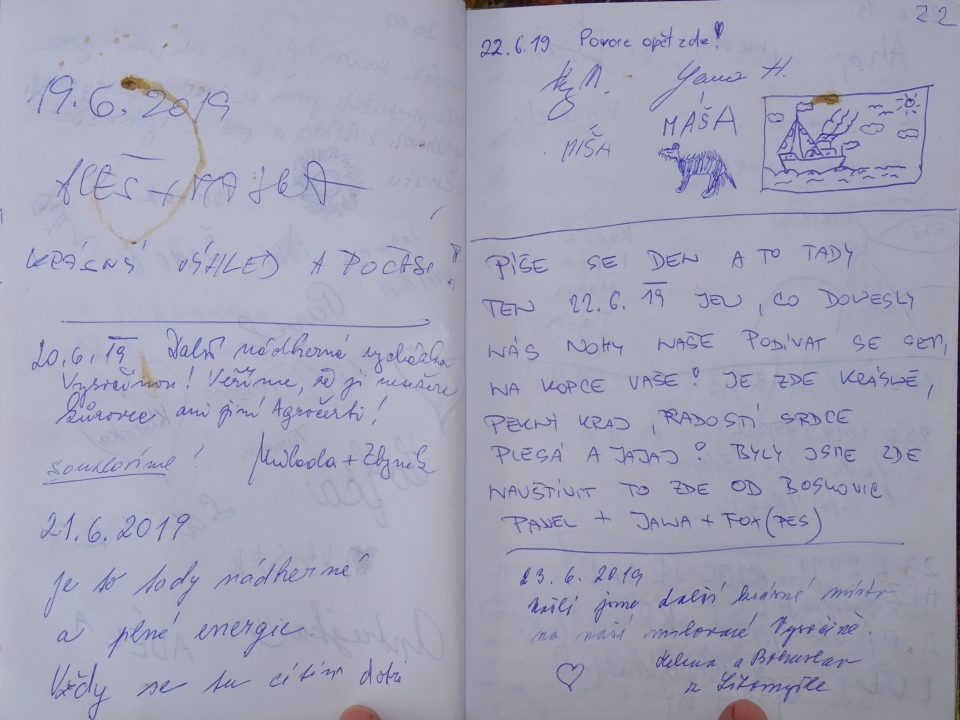 19.6.2019
ALEŠ + MAJKA
KRÁSNÝ VÝHLED A POČASÍ
20.6.19 Další nádherná vycházka
Vysočinou! Věříme, že ji nesežere
kůrovec ani jiní Agročerti!
souhlasíme! Miloda + Zbyněk
21.6.2019
je to tady nádherné
a plné energie
Vždy se tu cítím dobře
22
22.6.19 Povore opět zde!
Jana H.
MÍŠA
MAŠA
PÍŠE SE DEN A TO TADY
TEN 22.6.19 JEN, CO DONESLY
NÁS NOHY NAŠE PODÍVAT SE SEM,
NA KOPCE VAŠE! JE ZDE KRÁSNĚ,
PĚKNÝ KRAJ, RADOSTÍ SRDCE
PLESÁ A JAJAJ! BYLY JSME ZDE
NAVŠTÍVIT TO ZDE OD BOSKOVIC
PAVEL + JANA + FOX (PES)
23.6.2019
Našli jsme další krásné místo
na naší milované Vysočině.
Helena a Bohuslav
z Litomyšle